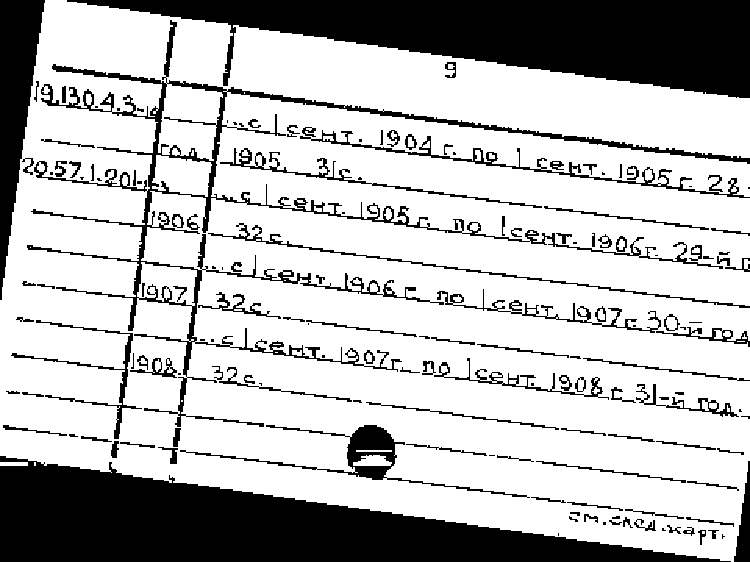 9
19.130.4.3-14 ...с 1 сент. 1904 г. по 1 сент. 1905 г. 28-
год. 1905. 31 с.
20.57.1.201 ...с 1 сент. 1905 г. по 1 сент. 1906 г. 29-й г
1906 32 с.
...с 1 сент. 1906 г. по 1 сент. 1907 г. 30-й год
1907. 32 с.
...с 1 сент. 1907 г. по 1 сент. 1908 г. 31-й год.
1908. 32 с.
см. след. карт.